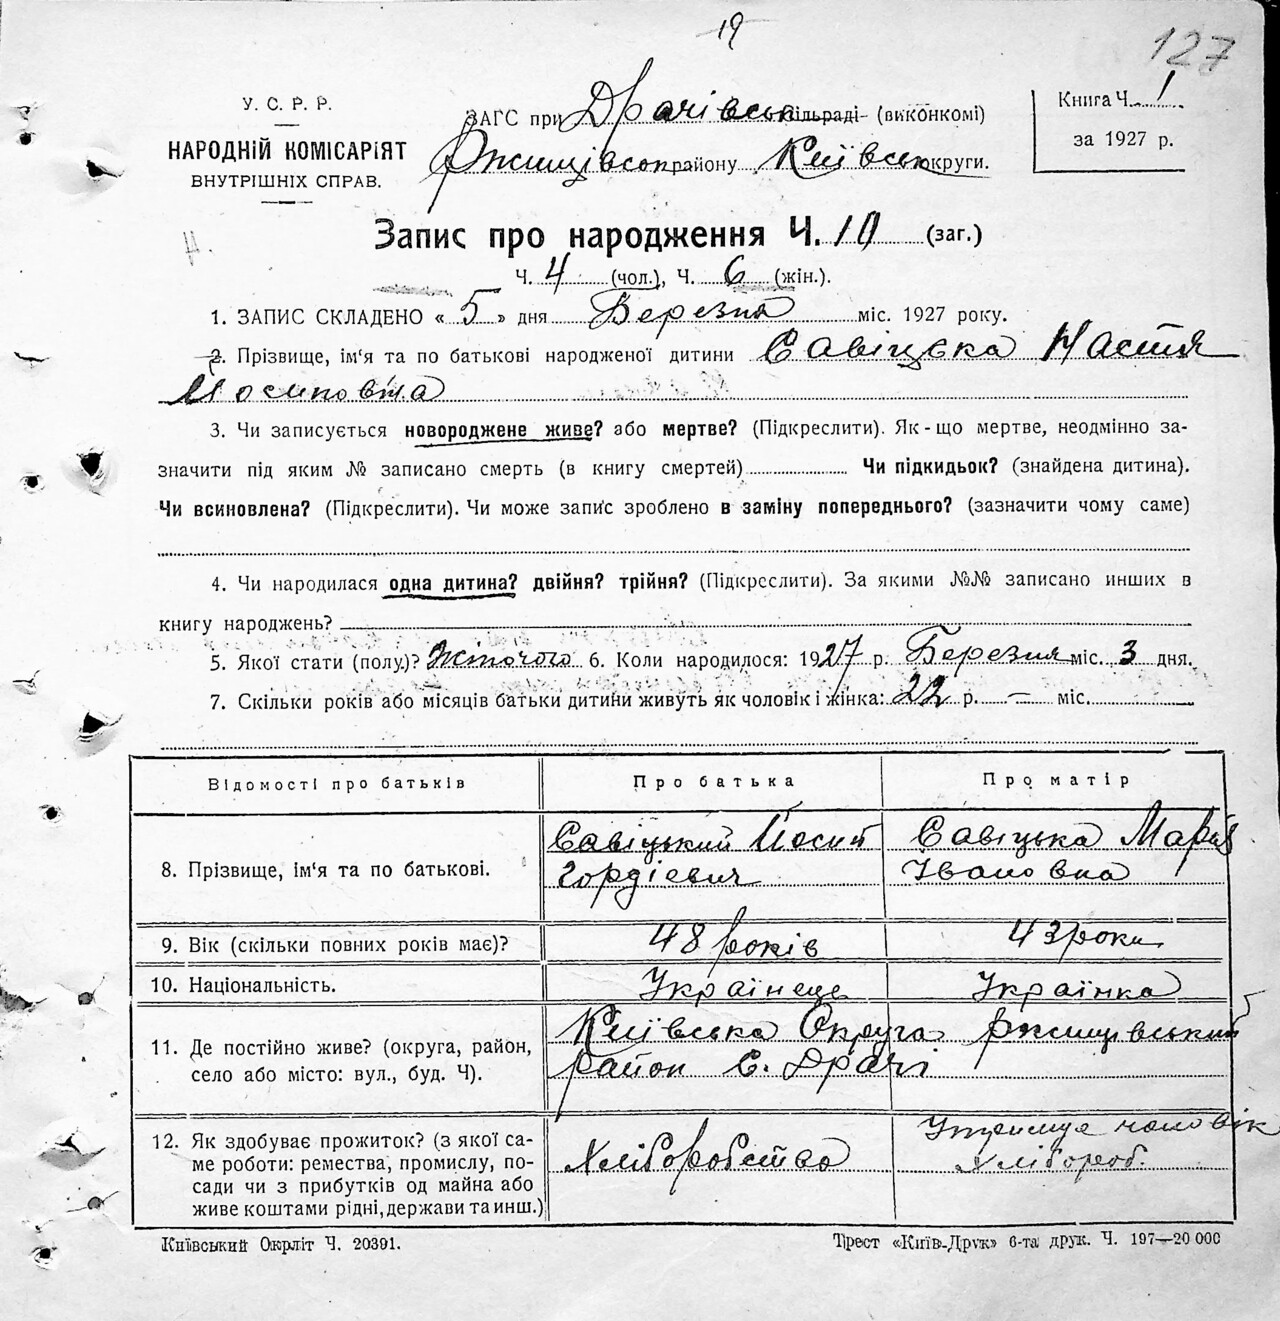 19
127
У. С. Р. Р.
НАРОДНІЙ КОМІСАРІЯТ
ВНУТРІШНІХ СПРАВ.
ЗАГС при Драчівськ сільраді (виконкомі)
Ржищівськ району Київськ округи.
Книга Ч. 1
за 1927 р.
Запис про народження Ч. 10 (заг.)
Ч. 4 (чол.), Ч. 6 (жін.).
1. ЗАПИС СКЛАДЕНО « 5 » дня Березня міс. 1927 року.
2. Прізвище, ім'я та по батькові народженої дитини Савіцька Настя
Йосиповна
3. Чи записується новороджене живе? або мертве? (Підкреслити). Як-що мертве, неодмінно за-
значити під яким № записано смерть (в книгу смертей) Чи підкидьок? (знайдена дитина).
Чи всиновлена? (Підкреслити). Чи може запис зроблено в заміну попереднього? (зазначити чому саме)
4. Чи народилася одна дитина? двійня? трійня? (Підкреслити). За якими №№ записано инших в
книгу народжень?
5. Якої стати (полу)? Жіночого 6. Коли народилося: 1927 р. Березня міс. 3 дня.
7. Скільки років або місяців батьки дитини живуть як чоловік і жінка: 22 р. — міс.
Відомості про батьків
Про батька
Про матір
8. Прізвище, ім'я та по батькові.
Савіцький Йосип
Гордієвич
Савіцька Марія
Івановна
9. Вік (скільки повних років має)?
48 років
43 роки
10. Національність.
Українець
Українка
11. Де постійно живе? (округа, район,
село або місто: вул., буд. Ч).
Київська Округа Ржищівський
район С. Драчі
12. Як здобуває прожиток? (з якої са-
ме роботи: ремества, промислу, по-
сади чи з прибутків од майна або
живе коштами рідні, держави та инш.)
Хліборобство
Утримує чоловік
хлібороб.
Київський Окрліт Ч. 20391.
Трест «Київ-Друк» 6-та друк. Ч. 197—20 000